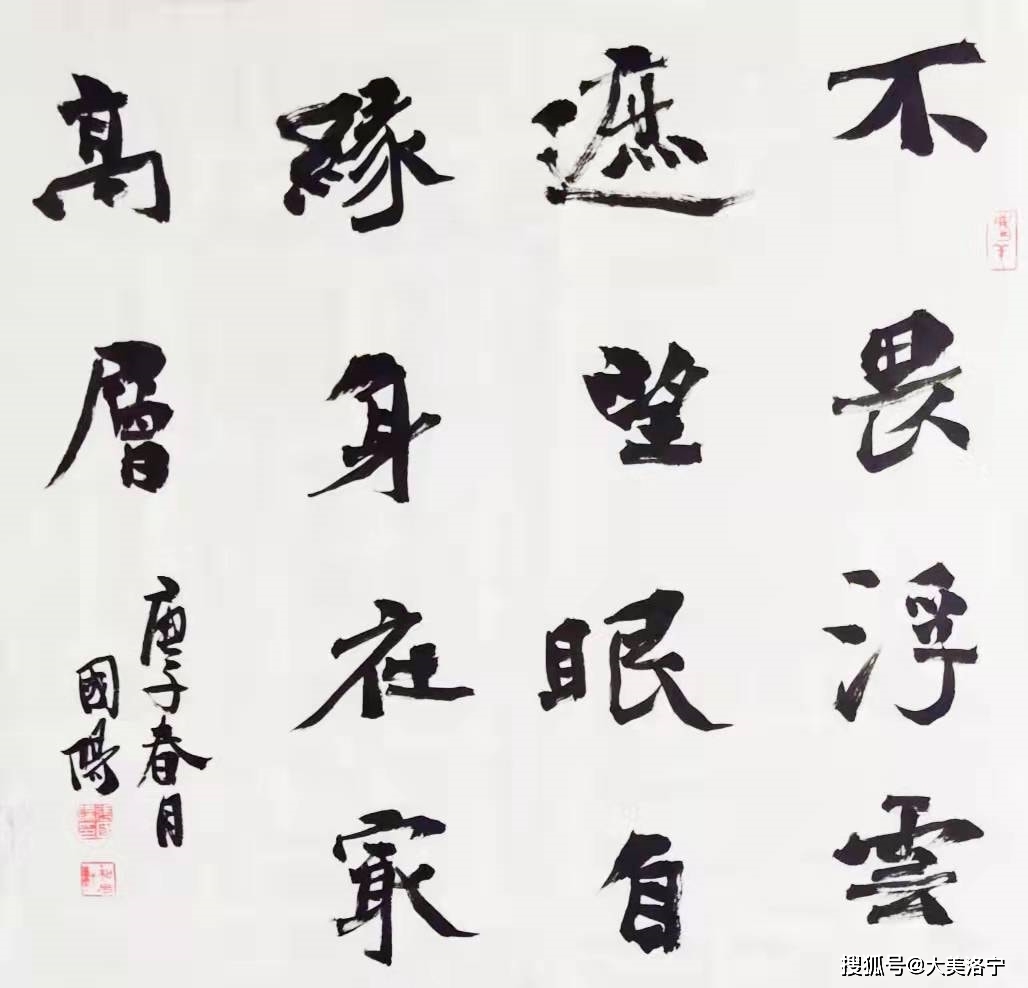 不畏浮雲
遮望眼自
緣身在㝡
高層
庚子春月
國陽
搜狐号@大美洛宁